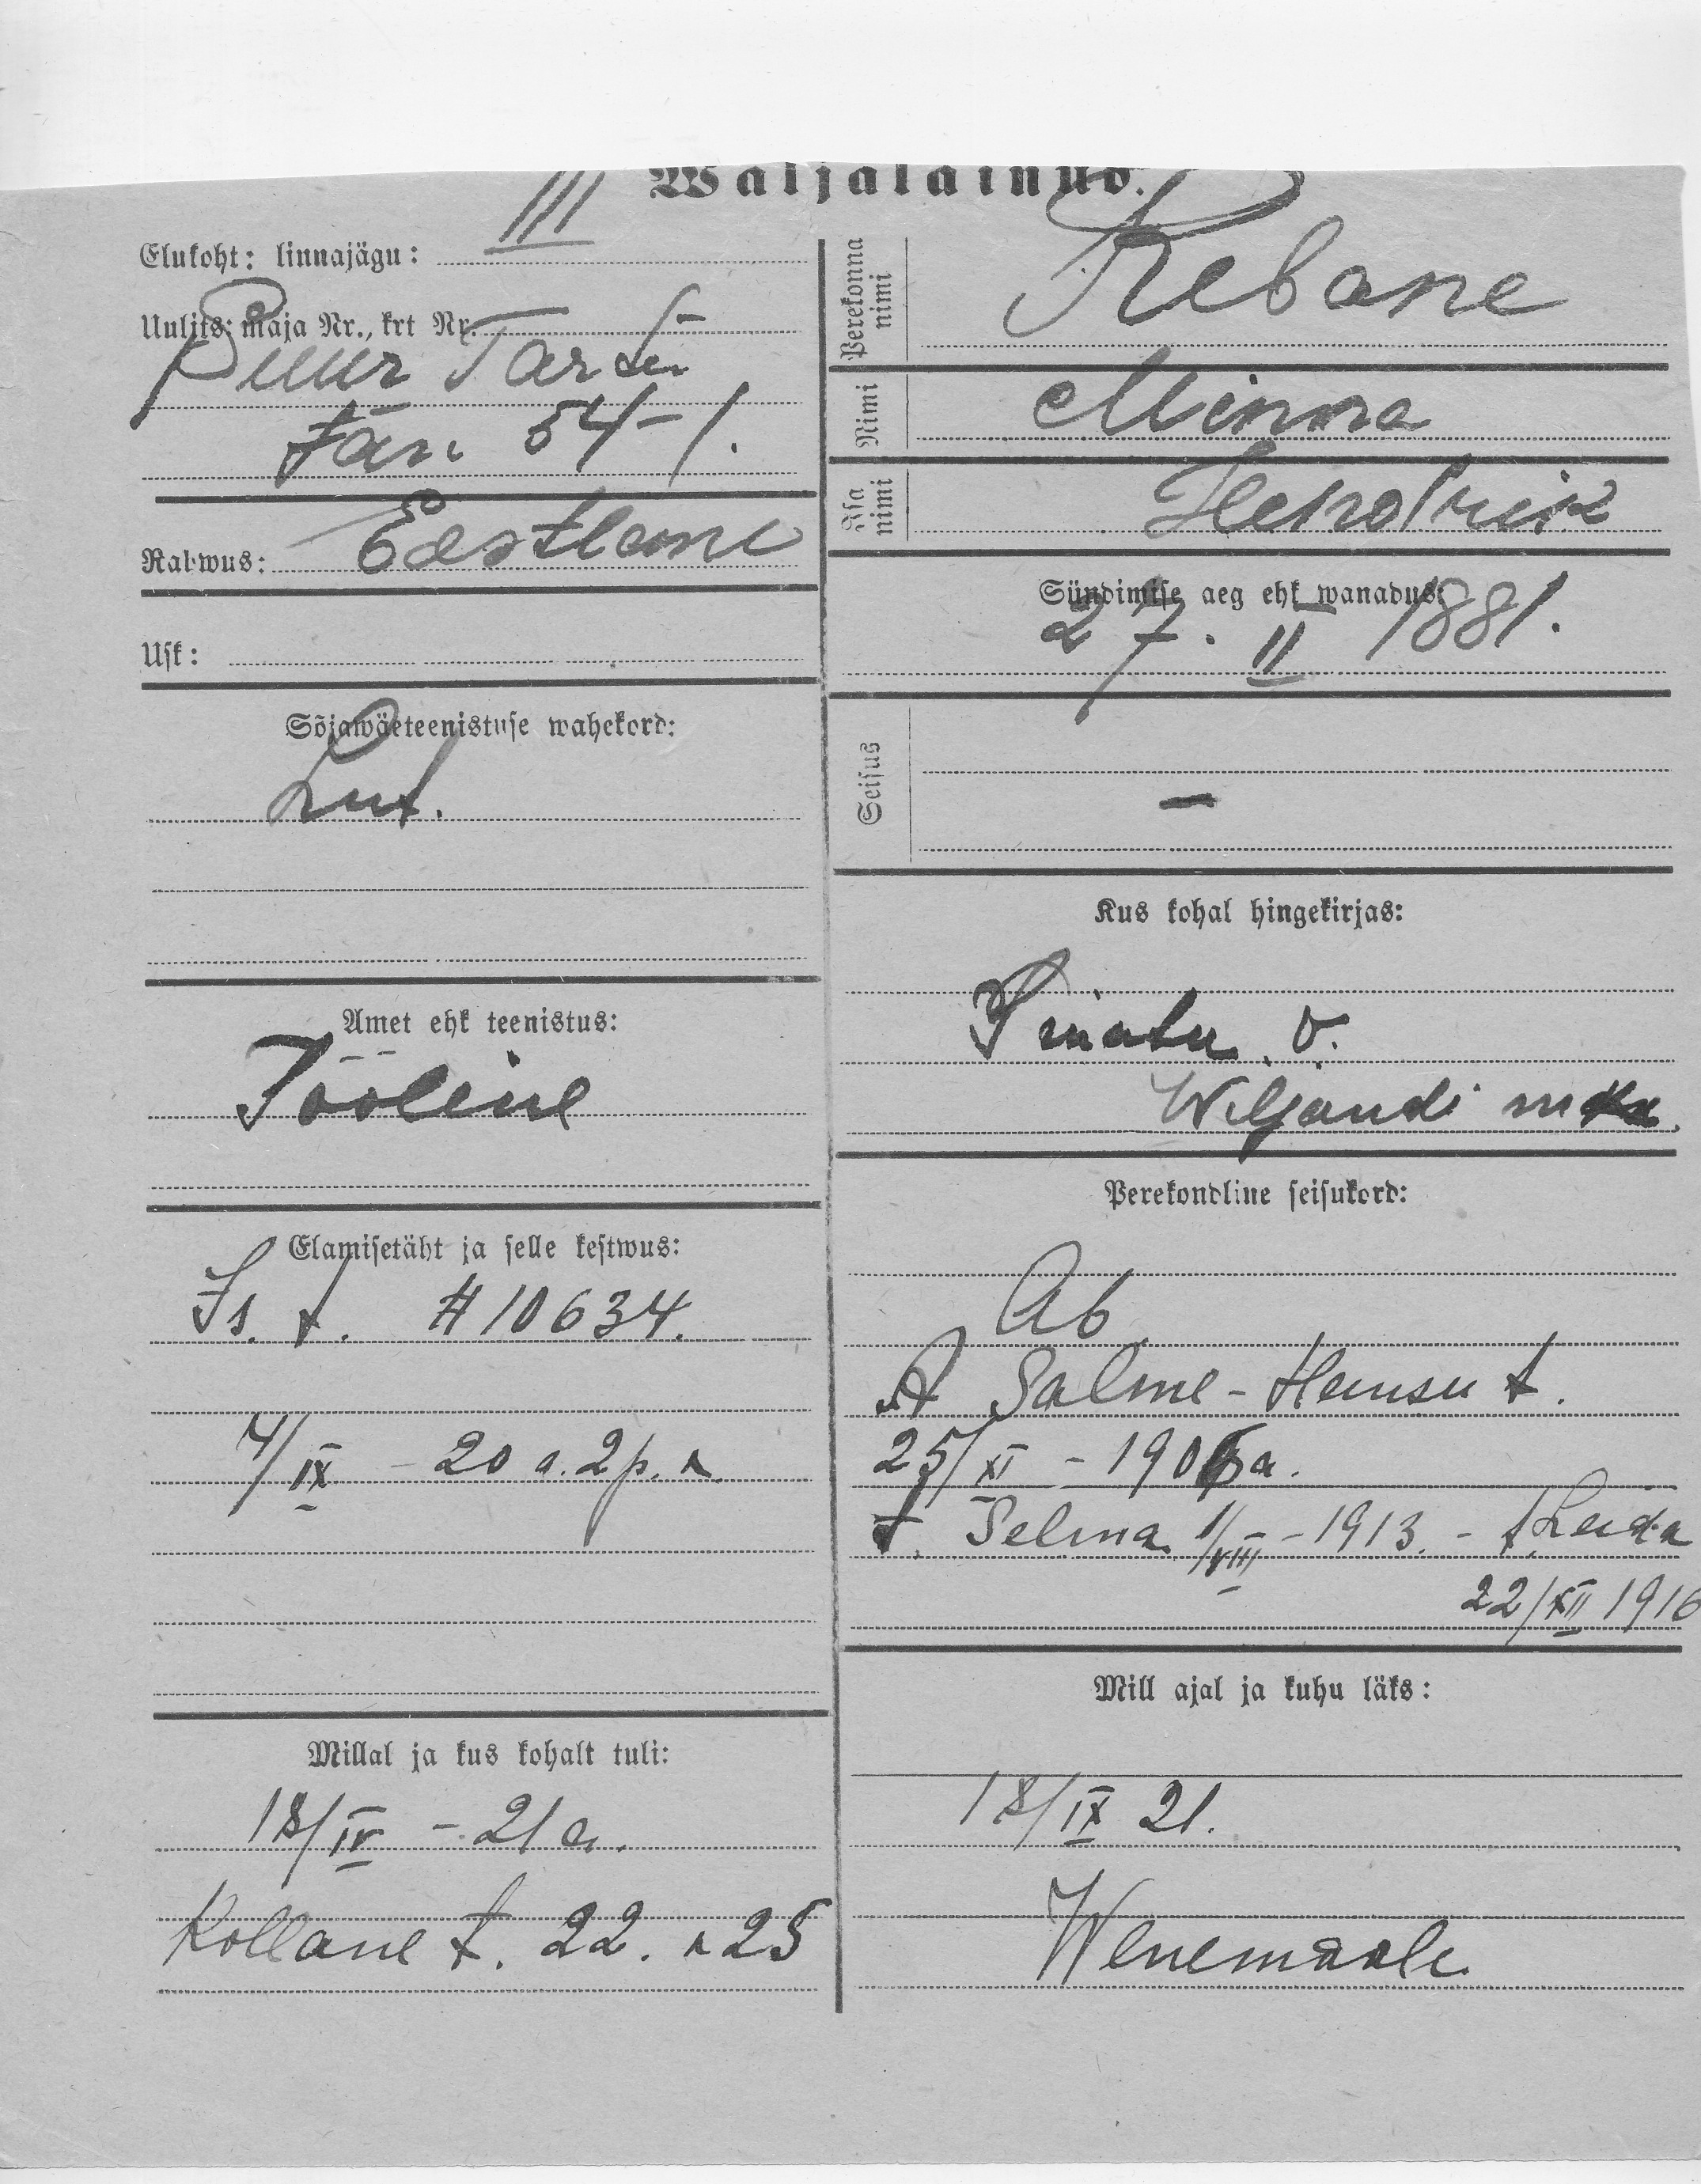 Wäljaläinud.
Elukoht: linnajägu: III
Uulits, maja Nr., krt Nr.
Suur Tartu
tän. 54-1.
Rahwus: Eestlane
Usk:
Sõjawäeteenistuse wahekord:
Lut.
Amet ehk teenistus:
Tööline
Elamisetäht ja selle kestwus:
Is. t. # 10634.
4/IX - 20 a. 2 p. r.
Millal ja kus kohalt tuli:
18/IV - 21 a.
Kollane t. 22. r 25
Perekonna nimi
Rebane
Nimi
Minna
Isa nimi
Hendrik
Sündimise aeg ehk wanadus:
27. II 1881.
Seisus
-
Kus kohal hingekirja:
v.
Wiljandi
Perekondline seisukord:
Ab
Salme - t.
25/XI - 1906 a.
t. Selma 1/VIII - 1913. - t. Leida
22/XII 1916
Mill ajal ja kuhu läks:
18/IX 21.
Wenemaale.